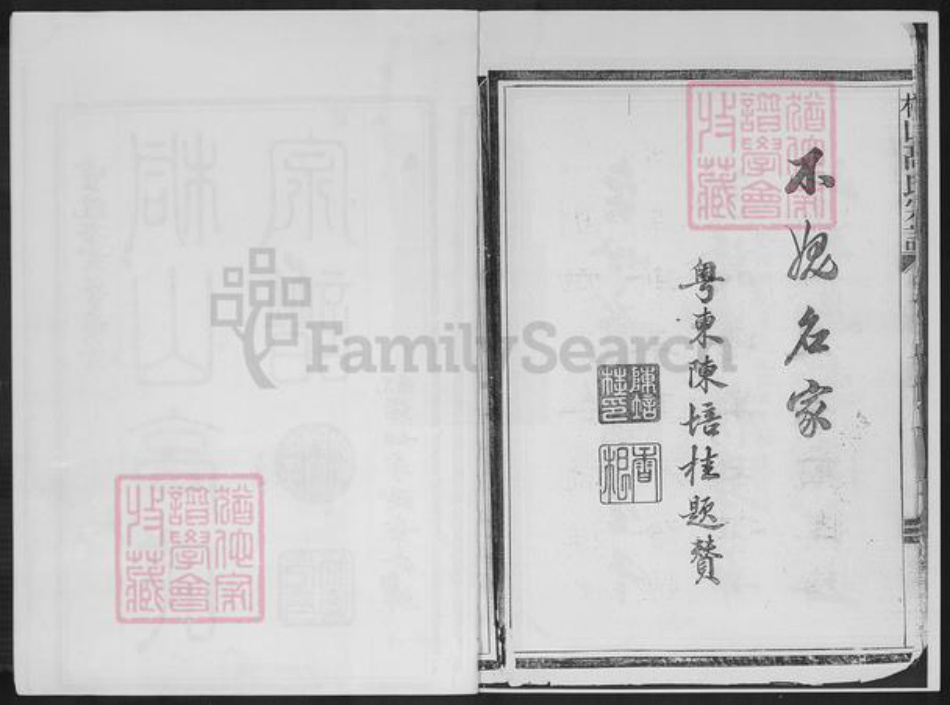 不愧名家
粵東陳培桂題贊
陳培桂印
香根
猶他家譜學會收藏
猶他家譜學會收藏
FamilySearch